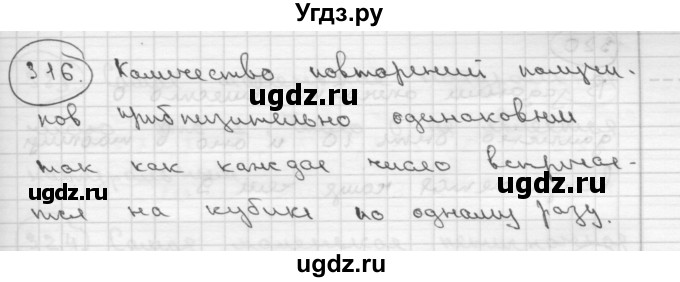 Угдз.ру
316. Количество повторений получи-
лов приблизительно одинаковым
так как каждое число встречае-
тся на кубике по одному разу.
ugdz.ru
ugdz.ru
ugdz.ru
ugdz.ru
ugdz.ru
ugdz.ru